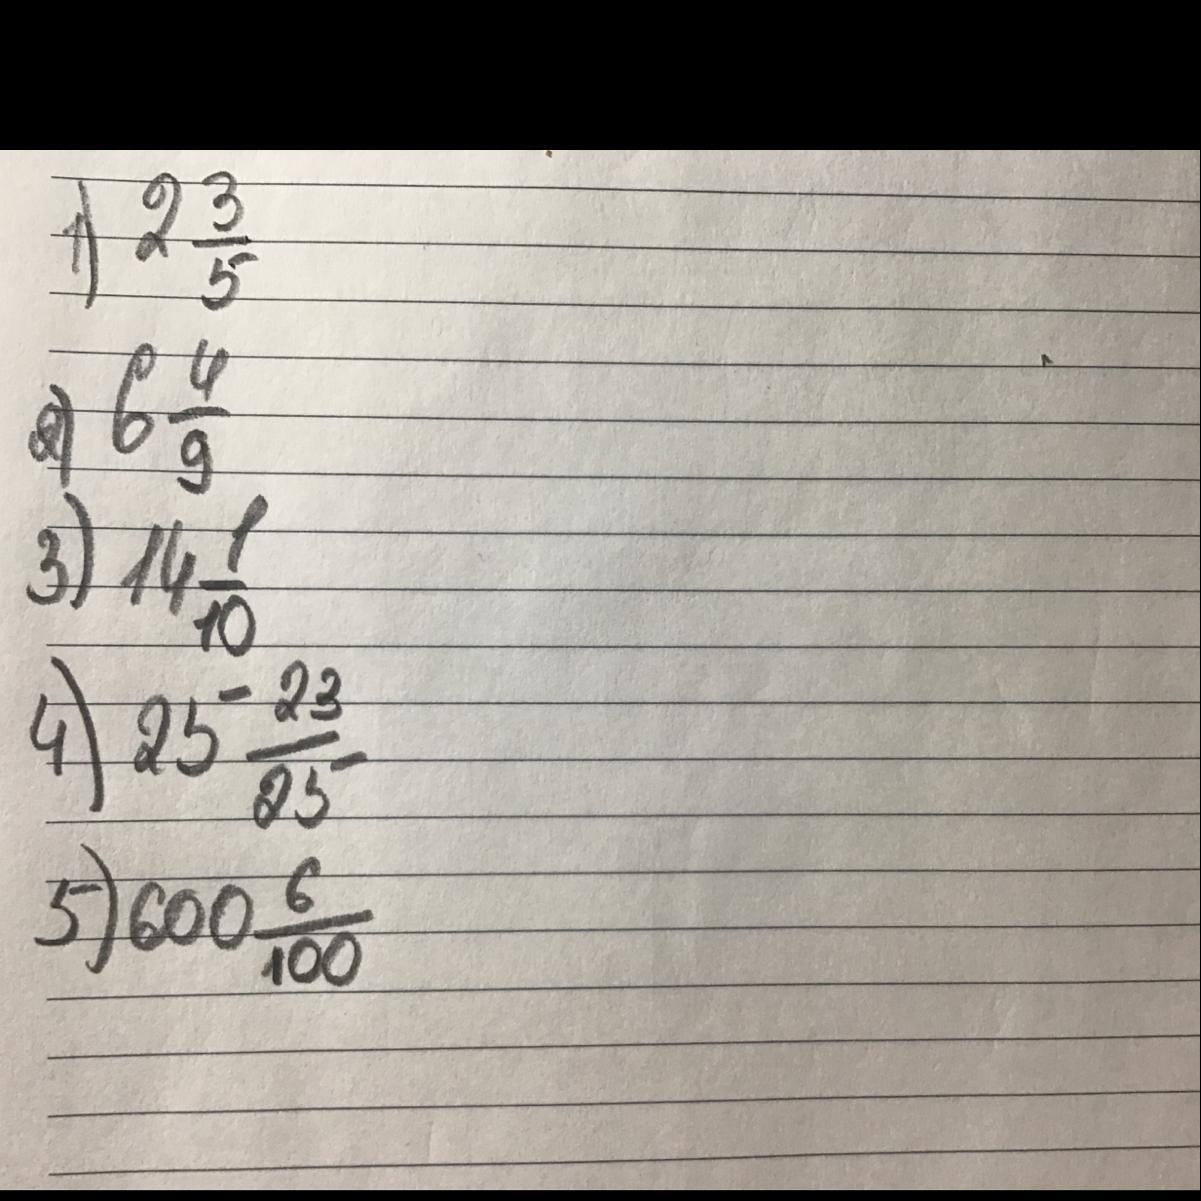 1) 2 3/5
2) 6 4/9
3) 14 1/10
4) 25 23/25
5) 600 6/100